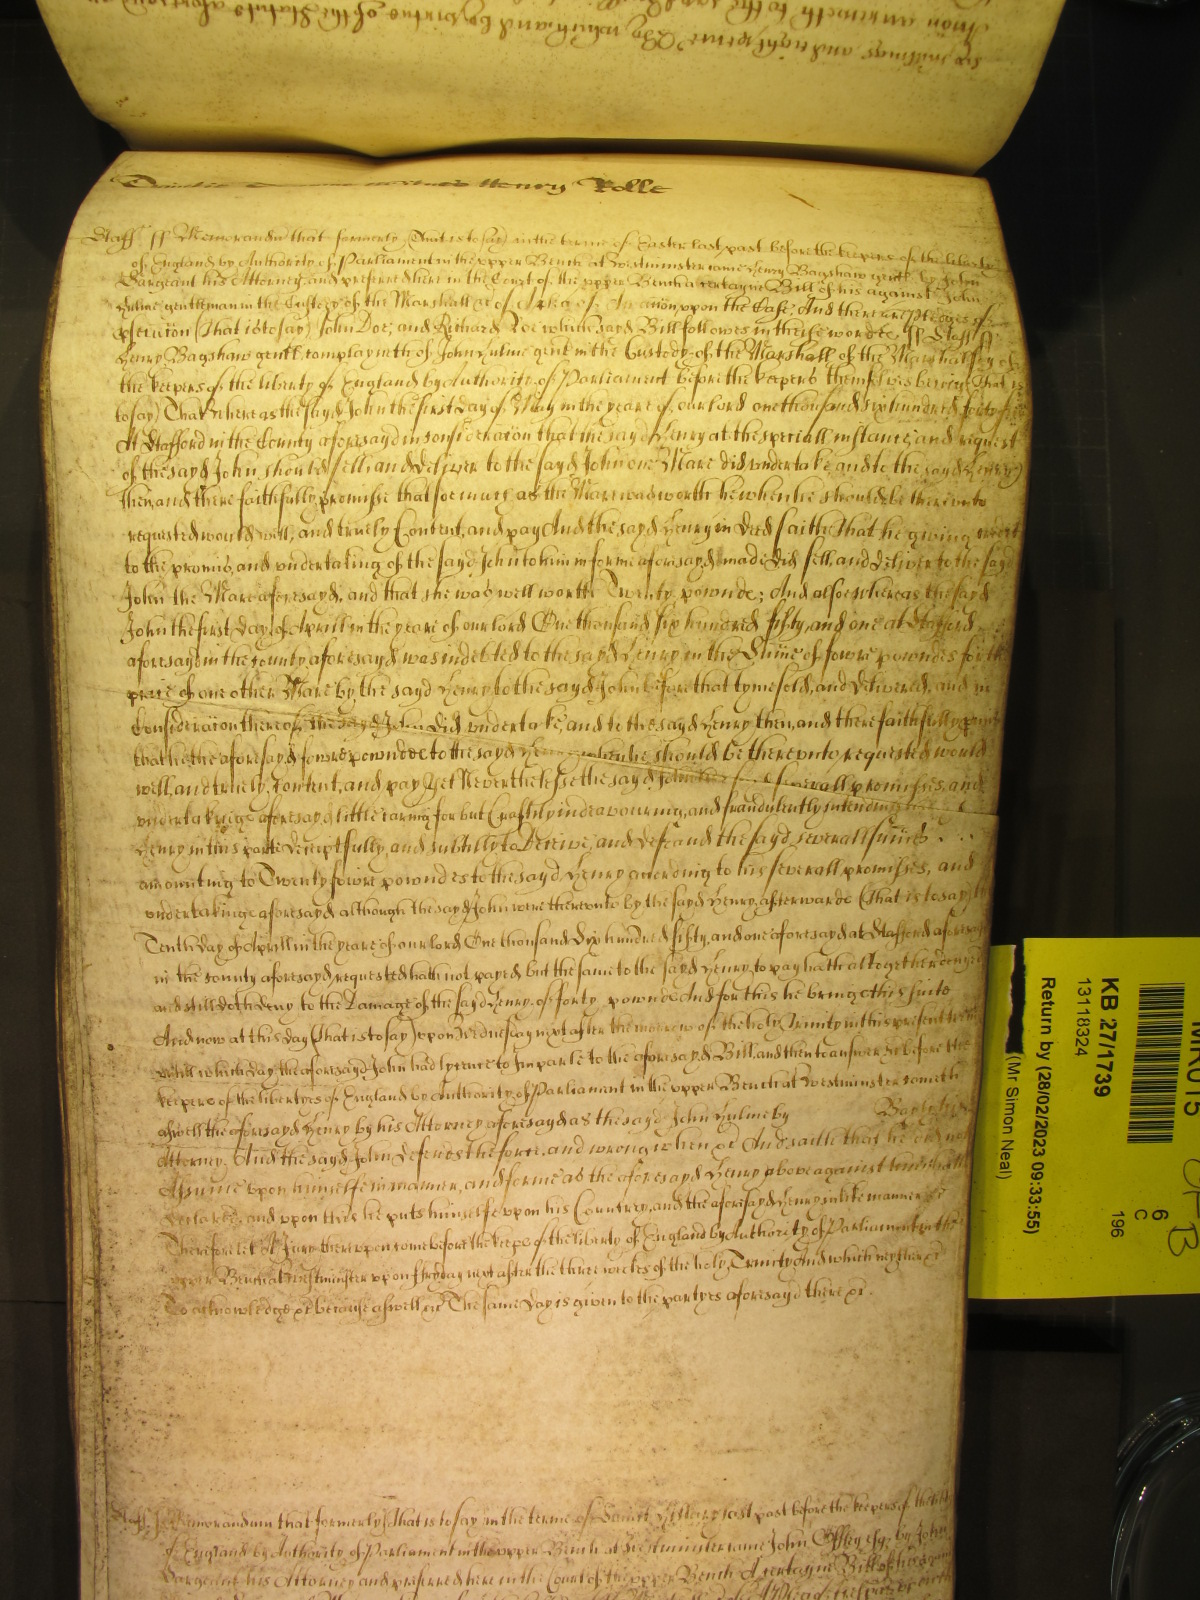 Henry Rolle
Staff ss Memorandu that formerly (That is to say) in the terme of Easter last past before the keepers of the liberty
of England by Authority of Parliament in the upper Bench at Westminster came Henry Bagshaw gent by John
Sargeant his Attorney and preferred here in the Court of the upper Bench a certayne Bill of his against John
Hulme gentleman in the Custody of the Marshall &c of a plea of An accon upon the Case, And there are Pledges of
psecucion (That is to say) John Doe, and Richard Roe which sayd Bill followes in theise wordes ss Staff ss
Henry Bagshaw gent complayneth of John Hulme gent in the Custody of the Marshall of the Marshallsey of
the keepers of the liberty of England by Authority of Parliament before the keepers themselves beeing That is
to say) That whereas the sayd John the first day of May in the yeare of our lord one thousand six hundred forty
At Stafford in the County aforesayd in consideracion that the sayd Henry at the speciall instance, and request
of the sayd John should sell and deliver to the sayd John one Mare did undertake and to the sayd Henry
then, and there faithfully promisse that soe much as the Mare was worth he when he should be thereunto
requested would well, and truely Content, and pay And the sayd Henry in deed saith That he giving credit
to the promis, and undertaking of the sayd John to him in forme aforesayd made did sell, and deliver to the sayd
John the Mare aforesayd, and that she was well worth Twenty pownds; And alsoe whereas the sayd
John the first day of Aprill in the yeare of our lord One thousand six hundred fifty, and one at Stafford
aforesayd in the county aforesayd was indebted to the sayd Henry in the Sume of fowre powndes for the
price of one other Mare by the sayd Henry to the sayd John before that tyme sold, and delivered, and in
Consideracion thereof the sayd John did undertake, and to the sayd Henry then, and there faithfully promise
that he the aforesayd fowre powndes to the sayd Henry when he should be thereunto requested would
well, and truely, content, and pay Yet Neverthelesse the sayd John his severall promisses, and
undertakings aforesayd little caring for but Craftily indeavouring, and fraudulently intending
Henry in this parte deceiptfully, and subtilly to Deceive, and defraud the sayd severall sumes
amounting to Twenty fowre powndes to the sayd Henry according to his severall promisses, and
undertakinge aforesayd although the sayd John were thereunto by the sayd Henry afterwards (That is to say) the
Tenth day of Aprill in the yeare of our lord One thousand Six hundred fifty, and one aforesayd at Stafford aforesayd
in the county aforesayd, requested hath not payed, but the same to the sayd Henry to pay hath altogether denyed
and still doth deny to the Damage of the sayd Henry of forty pownds And for this he brings this suite
And now at this day (That is to say) upon Wednesday next after the morrow of the holy Trinity in this present terme
untill which day the aforesayd John had lycence to Imparle to the aforesayd Bill, and then to answer &c before the
keepers of the libertyes of England by Authority of Parliament in the upper Bench at Westminster cometh
aswell the aforesayd Henry by his Attorney aforesayd as the sayd John Hulme by
Attorney. And the sayd John defends the force, and wrong when &c And saith that he did not
Assume upon himselfe in manner, and forme as the aforesayd Henry above against him hath
declared, and upon this he puts himselfe upon his Countrey, and the aforesayd Henry in like manner &c
Therefore let A Jury thereupon come before the keeps of the liberty of England by Authority of Parliament in the
upper Bench at Westminster upon Fryday next after the three weekes of the holy Trinity And which neyther &c
To acknowledge &c because aswell &c The same day is given to the partyes aforesayd there &c.
Staff ss Memorandum that formerly (That is to say in the terme of Saint Hillary last past before the keepers of the liberty
of England by Authority of Parliament in the upper Bench at Westminster came John Offley esq by John
Sargeant his Attorney and preferred here in the Court of the upper Bench A certayne Bill of his
KB 27/1739
13118324
Return by (28/02/2023 09:33:55)
(Mr Simon Neal)
6
C
196